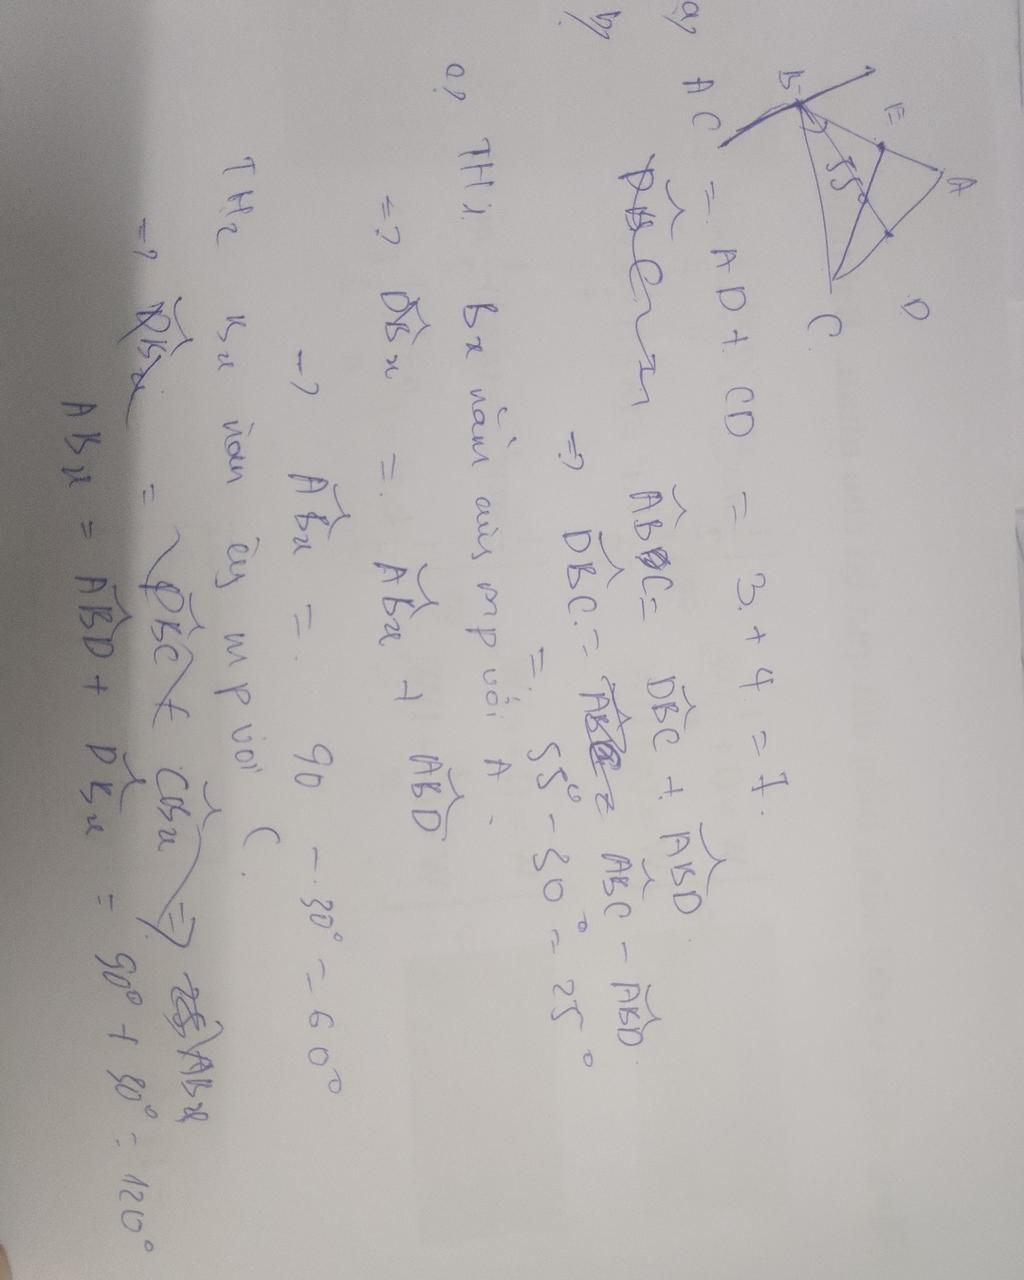 A
E
D
B
55°
C
a, AC = AD + CD = 3 + 4 = 7.
b, ABC = DBC + ABD
=> DBC = ABC - ABD
= 55° - 30° = 25°
c, TH1 Bx nằm cùng mp với A.
=> DBx = ABx + ABD
=> ABx = 90 - 30° = 60°
TH2 Bx nằm cùng mp với C.
=> DBx = DBC + CBx => ABx
ABx = ABD + DBx = 90° + 30° = 120°